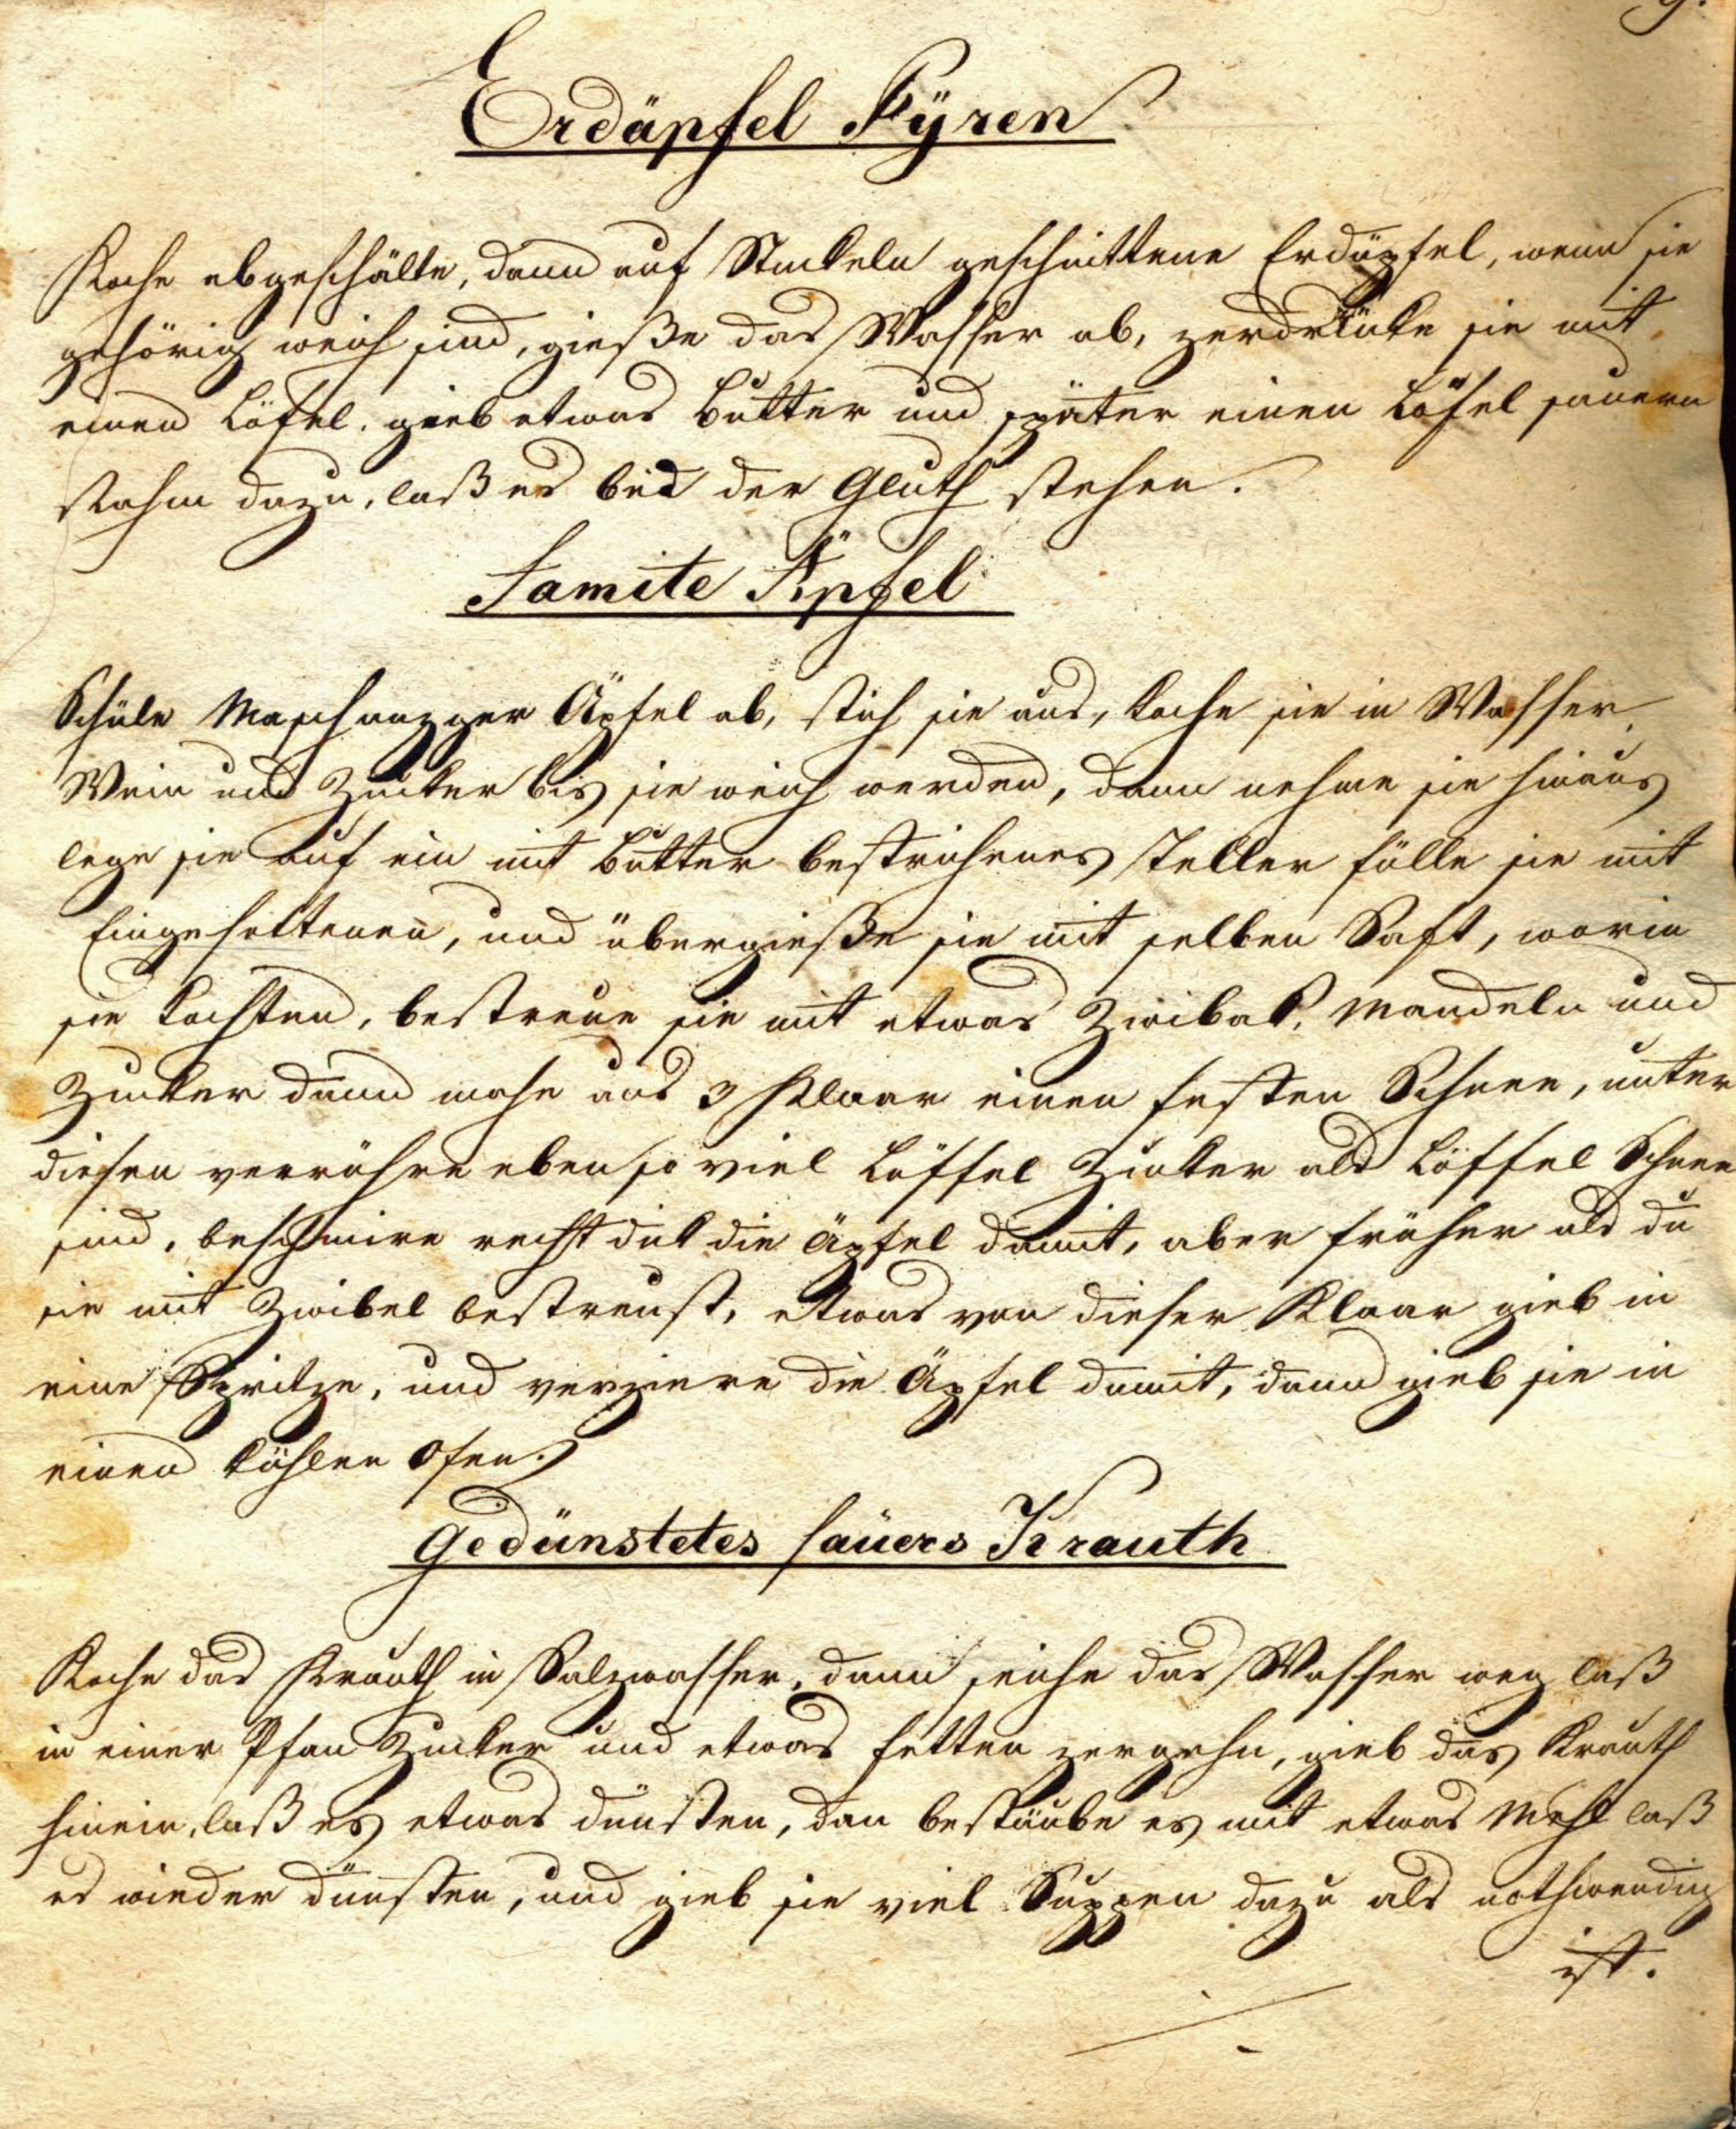 Erdäpfel Pÿren
Koche abgeschälte, dann auf Stuckeln geschnittene Erdäpfel, wenn sie
gehörig weich sind, gieße das Wasser ab, zerdrücke sie mit
einen Löfel. gieb etwas Butter und später einen Löfel sauern
Rahm dazu, laß es bei der Gluth stehen.
Famite Äpfel
Schäle Maschanzger Äpfel ab, stich sie aus, koche sie in Wasser,
Wein und Zucker bis sie weich werden, dann nehme sie hinaus
lege sie auf ein mit Butter bestrichenes Teller fülle sie mit
Eingesottenen, und übergieße sie mit selben Saft, worin
sie kochten, bestreue sie mit etwas Zwibak, Mandeln und
Zucker dann mache aus 3 Klaar einen festen Schnee, unter
diesen verrühre eben so viel Löffel Zucker als Löffel Schnee
sind, beschmire recht dick die Äpfel damit, aber früher als du
sie mit Zwibel bestreust, etwas von dieser Klaar gieb in
eine Spritze, und verziere die Äpfel damit, dann gieb sie in
einen kühlen Ofen.
Gedünstetes saüers Krauth
Koche das Krauth in Salzwasser, dann seihe das Wasser weg laß
in einer Pfan Zucker und etwas fetten zergehn, gieb das Krauth
hinein, laß es etwas dünsten, dan bestäube es mit etwas Mehl laß
es wieder dünsten, und gieb sie viel Suppen dazu als nothwendig
ist.